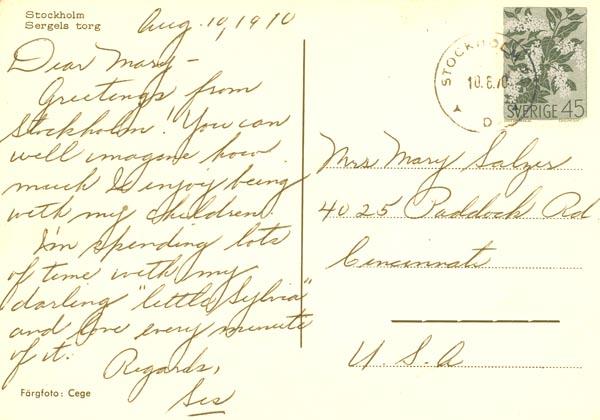 Stockholm
Sergels torg
Aug. 10, 1970
Dear Mary –
Greetings from
Stockholm! You can
well imagine how
much I enjoy being
with my children.
I'm spending lots
of time with my
darling "little Sylvia"
and love every minute
of it.
Regards,
Sis
Färgfoto: Cege
STOCKHOLM
10.8.70
D
SVERIGE 45
Mrs Mary Salzer
4025 Paddock Rd.
Cincinnati
U.S.A